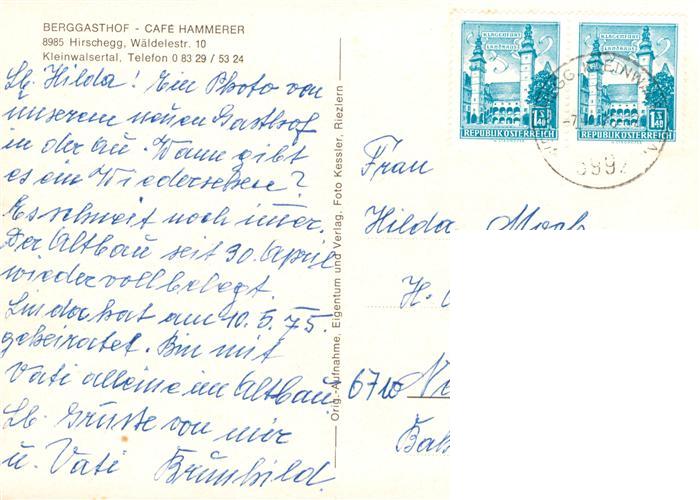 BERGGASTHOF - CAFÉ HAMMERER
8985 Hirschegg, Wäldelestr. 10
Kleinwalsertal, Telefon 0 83 29 / 53 24
Lb. Hilda! Ein Photo von
unserem neuen Gasthof
in der Au. Wann gibt
es ein Wiedersehen?
Es schneit noch immer.
Der Altbau seit 30. April
wieder vollbelegt.
Linda hat am 10.5.75.
geheiratet. Bin mit
Vati alleine im Altbau.
Lb. Grüsse von mir
u. Vati Brunhild.
Orig.-Aufnahme, Eigentum und Verlag, Foto Kessler, Riezlern
KLAGENFURT LANDHAUS
1 S 40
REPUBLIK ÖSTERREICH
KLAGENFURT LANDHAUS
1 S 40
REPUBLIK ÖSTERREICH
Frau
Hilda
H.
6710